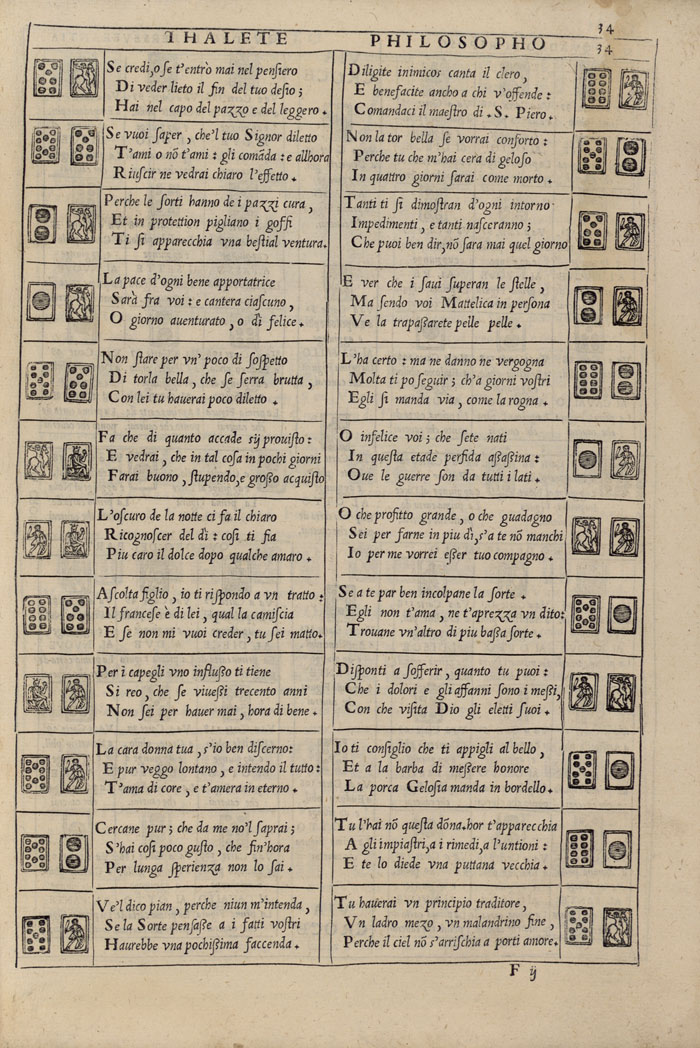 34
THALETE PHILOSOPHO
34
Se credi, o se t'entrò mai nel pensiero
Di veder lieto il fin del tuo desio;
Hai nel capo del pazzo e del leggero.
Se vuoi saper, che'l tuo Signor diletto
T'ami o nō t'ami: gli comāda: e allhora
Riuscir ne vedrai chiaro l'effetto.
Perche le sorti hanno de i pazzi cura,
Et in protettion pigliano i goffi
Ti si apparecchia vna bestial ventura.
La pace d'ogni bene apportatrice
Sarà fra voi: e cantera ciascuno,
O giorno auenturato, o dì felice.
Non stare per vn' poco di sospetto
Di torla bella, che se serra brutta,
Con lei tu hauerai poco diletto.
Fa che di quanto accade sij prouisto:
E vedrai, che in tal cosa in pochi giorni
Farai buono, stupendo, e grosso acquisto
L'oscuro de la notte ci fa il chiaro
Ricognoscer del dì: cosi ti fia
Piu caro il dolce dopo qualche amaro.
Ascolta figlio, io ti rispondo a vn tratto:
Il francese è di lei, qual la camiscia
E se non mi vuoi creder, tu sei matto.
Per i capegli vno influsso ti tiene
Si reo, che se viuessi trecento anni
Non sei per hauer mai, hora di bene.
La cara donna tua, s'io ben discerno:
E pur veggo lontano, e intendo il tutto:
T'ama di core, e t'amera in eterno.
Cercane pur; che da me no'l saprai;
S'hai cosi poco gusto, che fin'hora
Per lunga sperienza non lo sai.
Ve'l dico pian, perche niun m'intenda,
Se la Sorte pensasse a i fatti vostri
Haurebbe vna pochissima faccenda.
Diligite inimicos canta il clero,
E benefacite ancho a chi v'offende:
Comandaci il maestro di .S. Piero.
Non la tor bella se vorrai conforto:
Perche tu che m'hai cera di geloso
In quattro giorni sarai come morto.
Tanti ti si dimostran d'ogni intorno
Impedimenti, e tanti nasceranno;
Che puoi ben dir, nō sara mai quel giorno
E ver che i saui superan le stelle,
Ma sendo voi Mattelica in persona
Ve la trapassarete pelle pelle.
L'ha certo: ma ne danno ne vergogna
Molta ti po seguir; ch'a giorni vostri
Egli si manda via, come la rogna.
O infelice voi; che sete nati
In questa etade perfida assassina:
Oue le guerre son da tutti i lati.
O che profitto grande, o che guadagno
Sei per farne in piu dì, s'a te nō manchi
Io per me vorrei esser tuo compagno.
Se a te par ben incolpane la sorte.
Egli non t'ama, ne t'aprezza vn dito:
Trouane vn'altro di piu bassa sorte.
Disponti a sofferir, quanto tu puoi:
Che i dolori e gli affanni sono i messi,
Con che visita Dio gli eletti suoi.
Io ti consiglio che ti appigli al bello,
Et a la barba di messere honore
La porca Gelosia manda in bordello.
Tu l'hai nō questa dōna. hor t'apparecchia
A gli impiastri, a i rimedi, a l'untioni:
E te lo diede vna puttana vecchia.
Tu hauerai vn principio traditore,
Vn ladro mezo, vn malandrino fine,
Perche il ciel nō s'arrischia a porti amore.
F ij